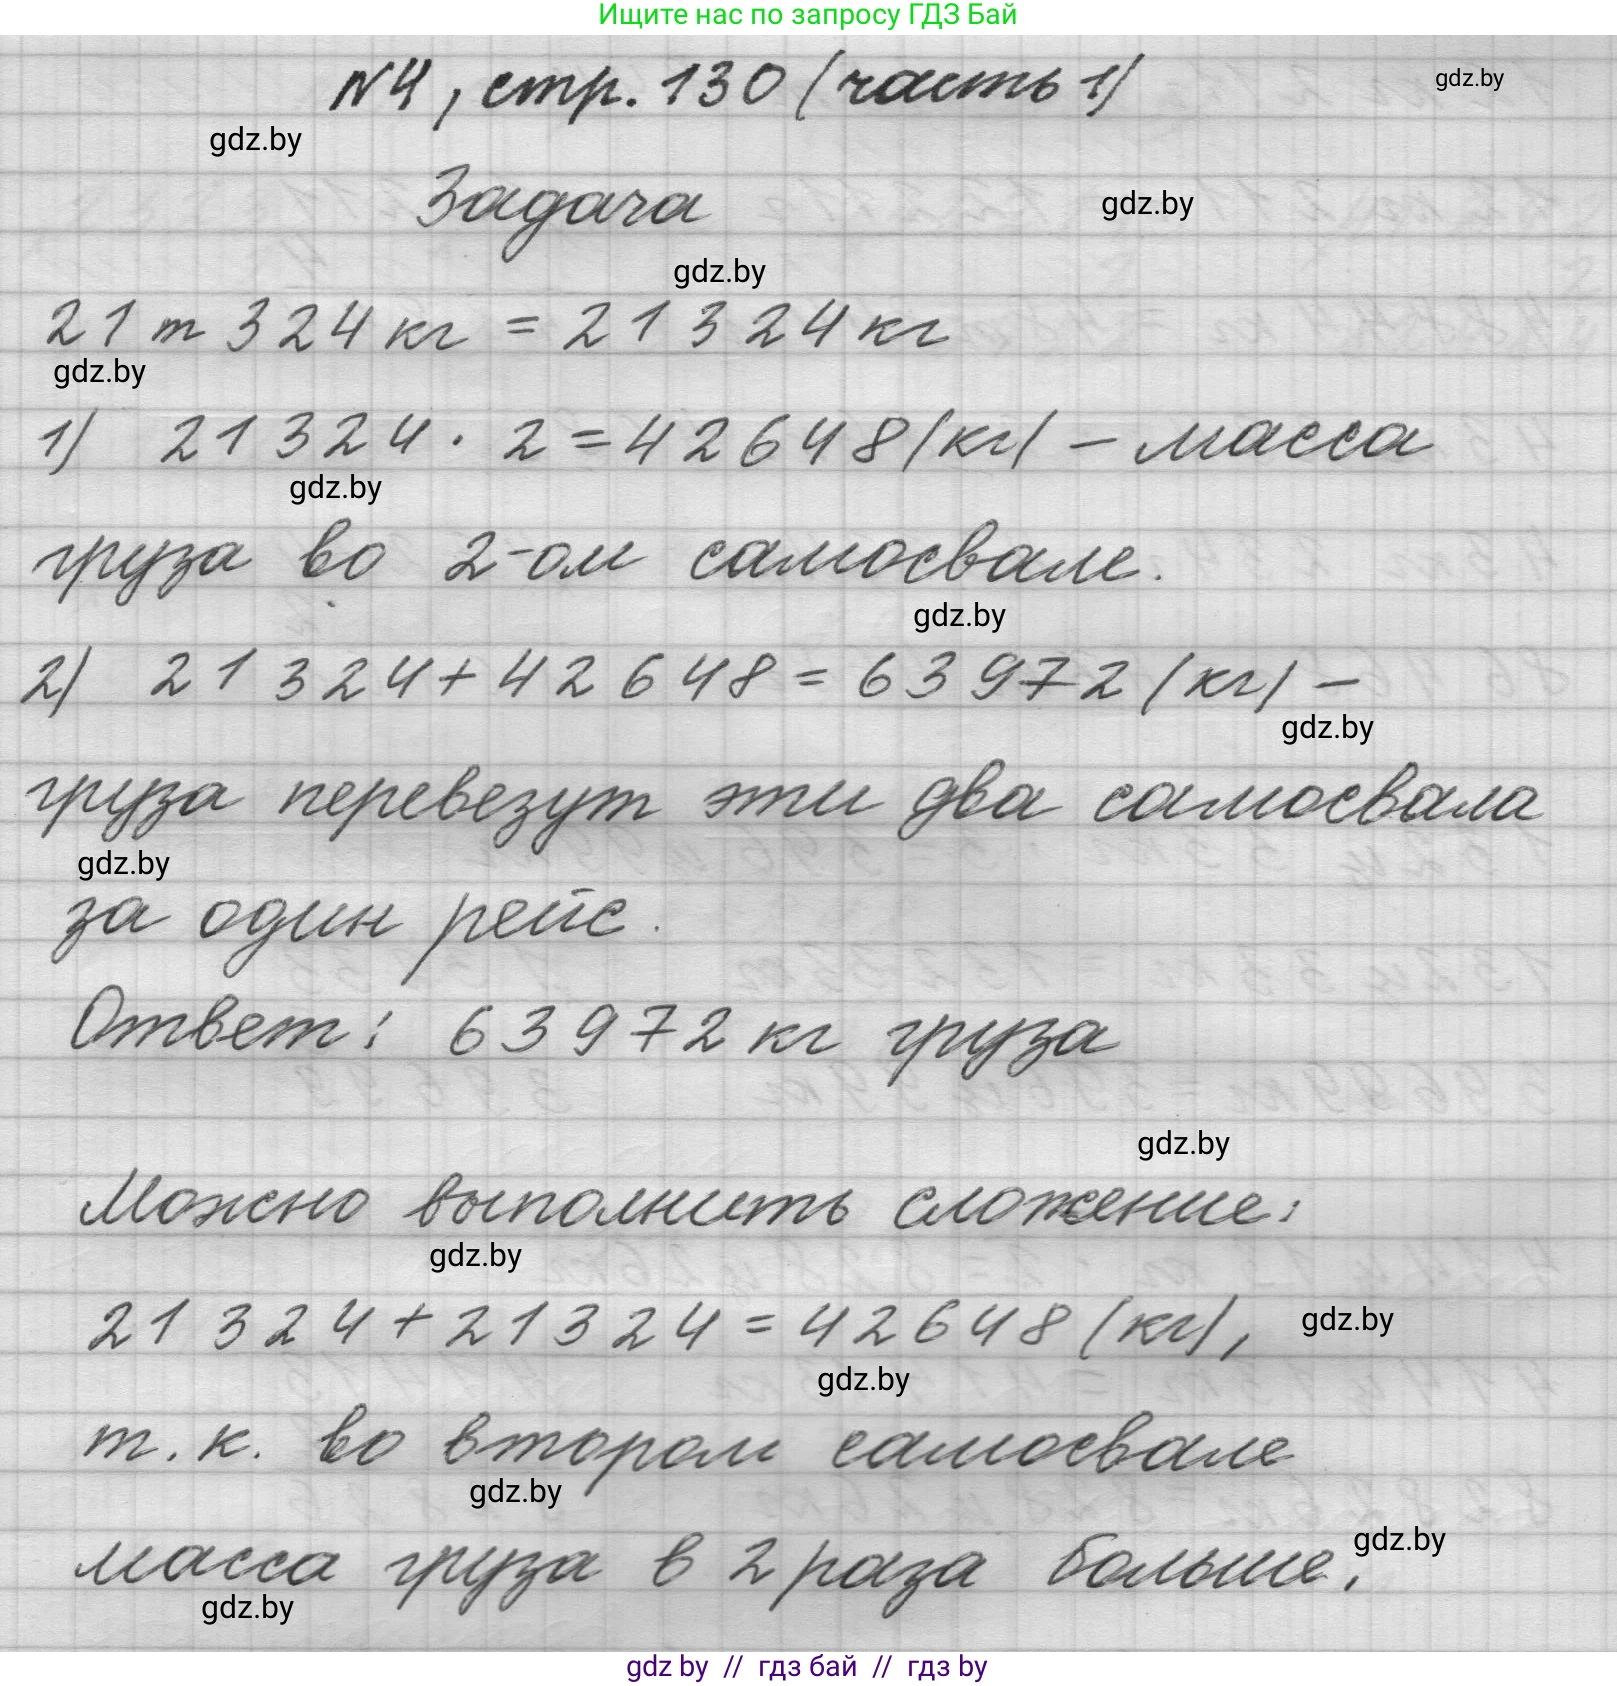 Ищите нас по запросу ГДЗ Бай
№4, стр. 130 (часть 1)
gdz.by
gdz.by
Задача
gdz.by
gdz.by
21 т 324 кг = 21324 кг
gdz.by
1) 21324 · 2 = 42648 (кг) - масса
gdz.by
груза во 2-ом самосвале.
gdz.by
2) 21324 + 42648 = 63972 (кг) -
gdz.by
груза перевезут эти два самосвала
gdz.by
за один рейс.
Ответ: 63972 кг груза
gdz.by
Можно выполнить сложение:
gdz.by
21324 + 21324 = 42648 (кг),
gdz.by
gdz.by
т. к. во втором самосвале
gdz.by
масса груза в 2 раза больше.
gdz.by
gdz.by
gdz by // гдз бай // гдз by